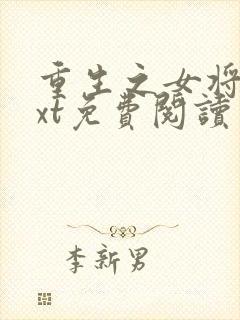 重生之女将
xt免費閱讀
李新男